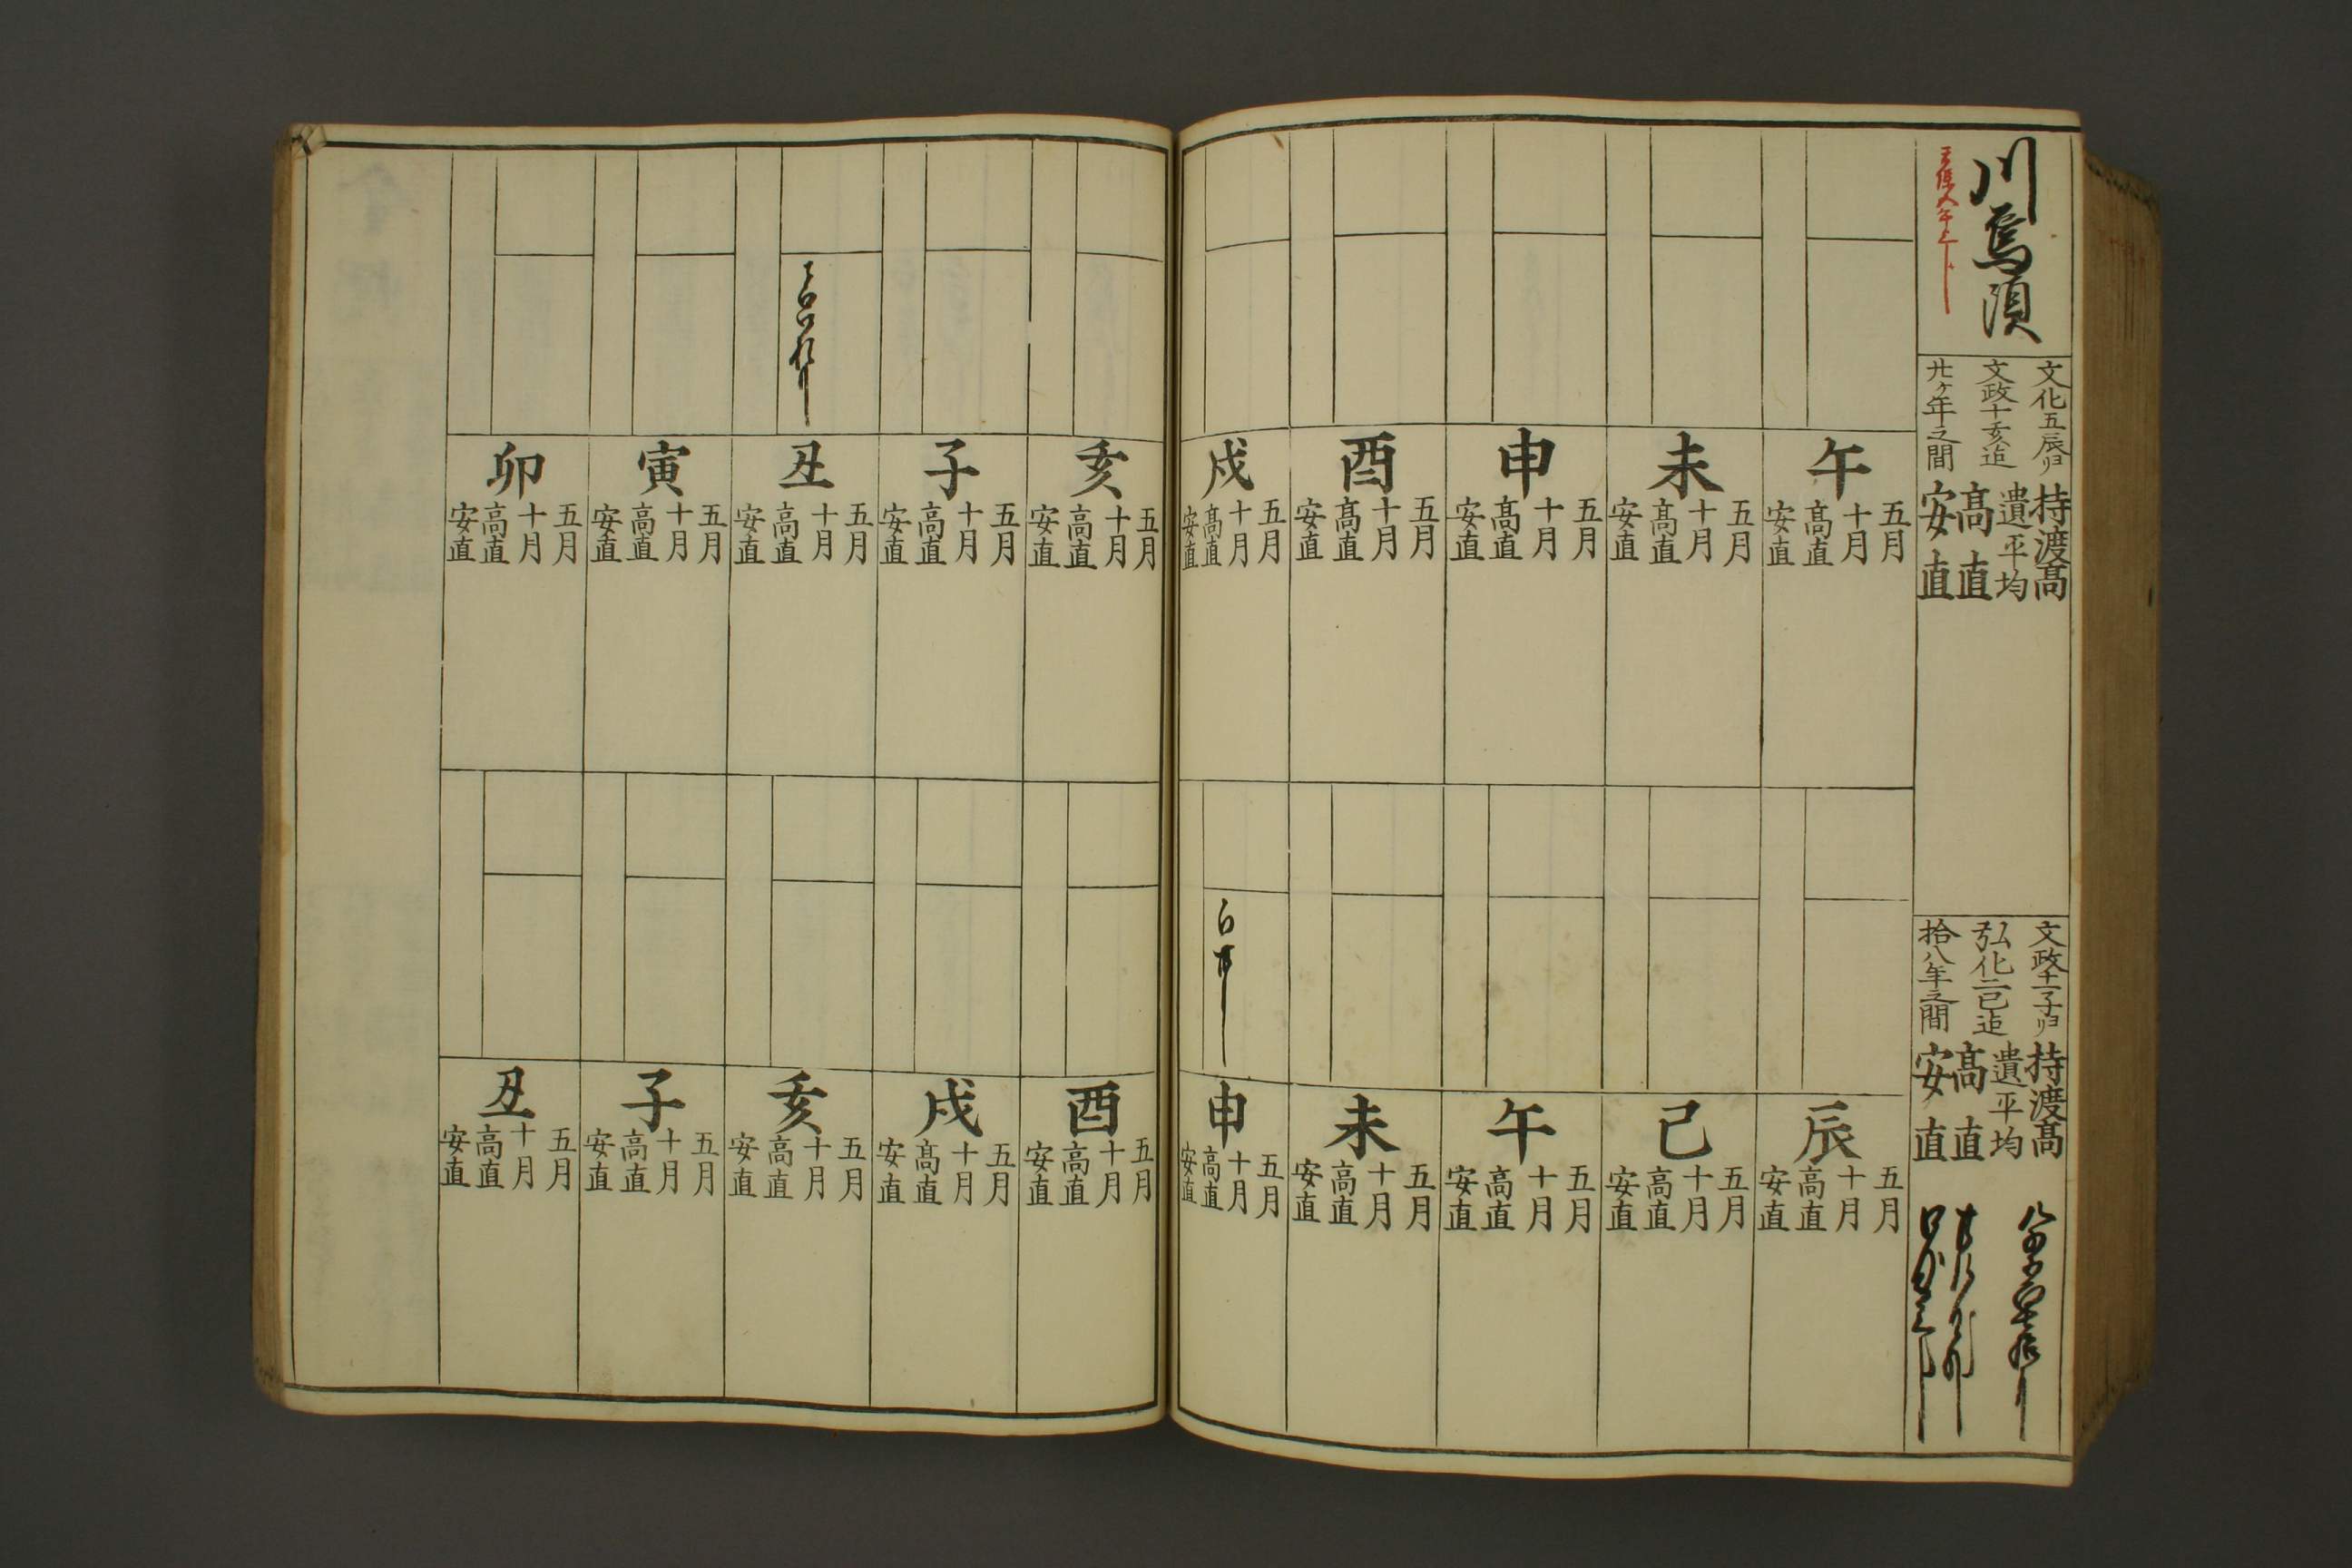 川烏頭
文化五辰ゟ
文政十亥迠
廿ケ年之間
持渡高
遺平均
高直
安直
文政十一子ゟ
弘化二巳迠
拾八年之間
持渡高
遺平均
高直
安直
午
五月
十月
高直
安直
未
五月
十月
高直
安直
申
五月
十月
高直
安直
酉
五月
十月
高直
安直
戌
五月
十月
高直
安直
辰
五月
十月
高直
安直
巳
五月
十月
高直
安直
午
五月
十月
高直
安直
未
五月
十月
高直
安直
申
五月
十月
高直
安直
亥
五月
十月
高直
安直
子
五月
十月
高直
安直
丑
五月
十月
高直
安直
寅
五月
十月
高直
安直
卯
五月
十月
高直
安直
酉
五月
十月
高直
安直
戌
五月
十月
高直
安直
亥
五月
十月
高直
安直
子
五月
十月
高直
安直
丑
五月
十月
高直
安直